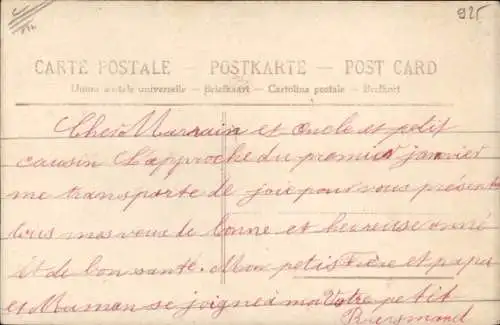 925
CARTE POSTALE — POSTKARTE — POST CARD
Union postale universelle – Briefkaart – Cartolina postale – Brefkort
Cher Marrain et oncle et petit
causin L'approche du premier janvier
me transporte de joie pour vous présent
tous mos veux de bonne et heureuse anné
et de bon santé. Mon petis Frère et papa
et Maman se joigne a moi Votre petit
Raymond